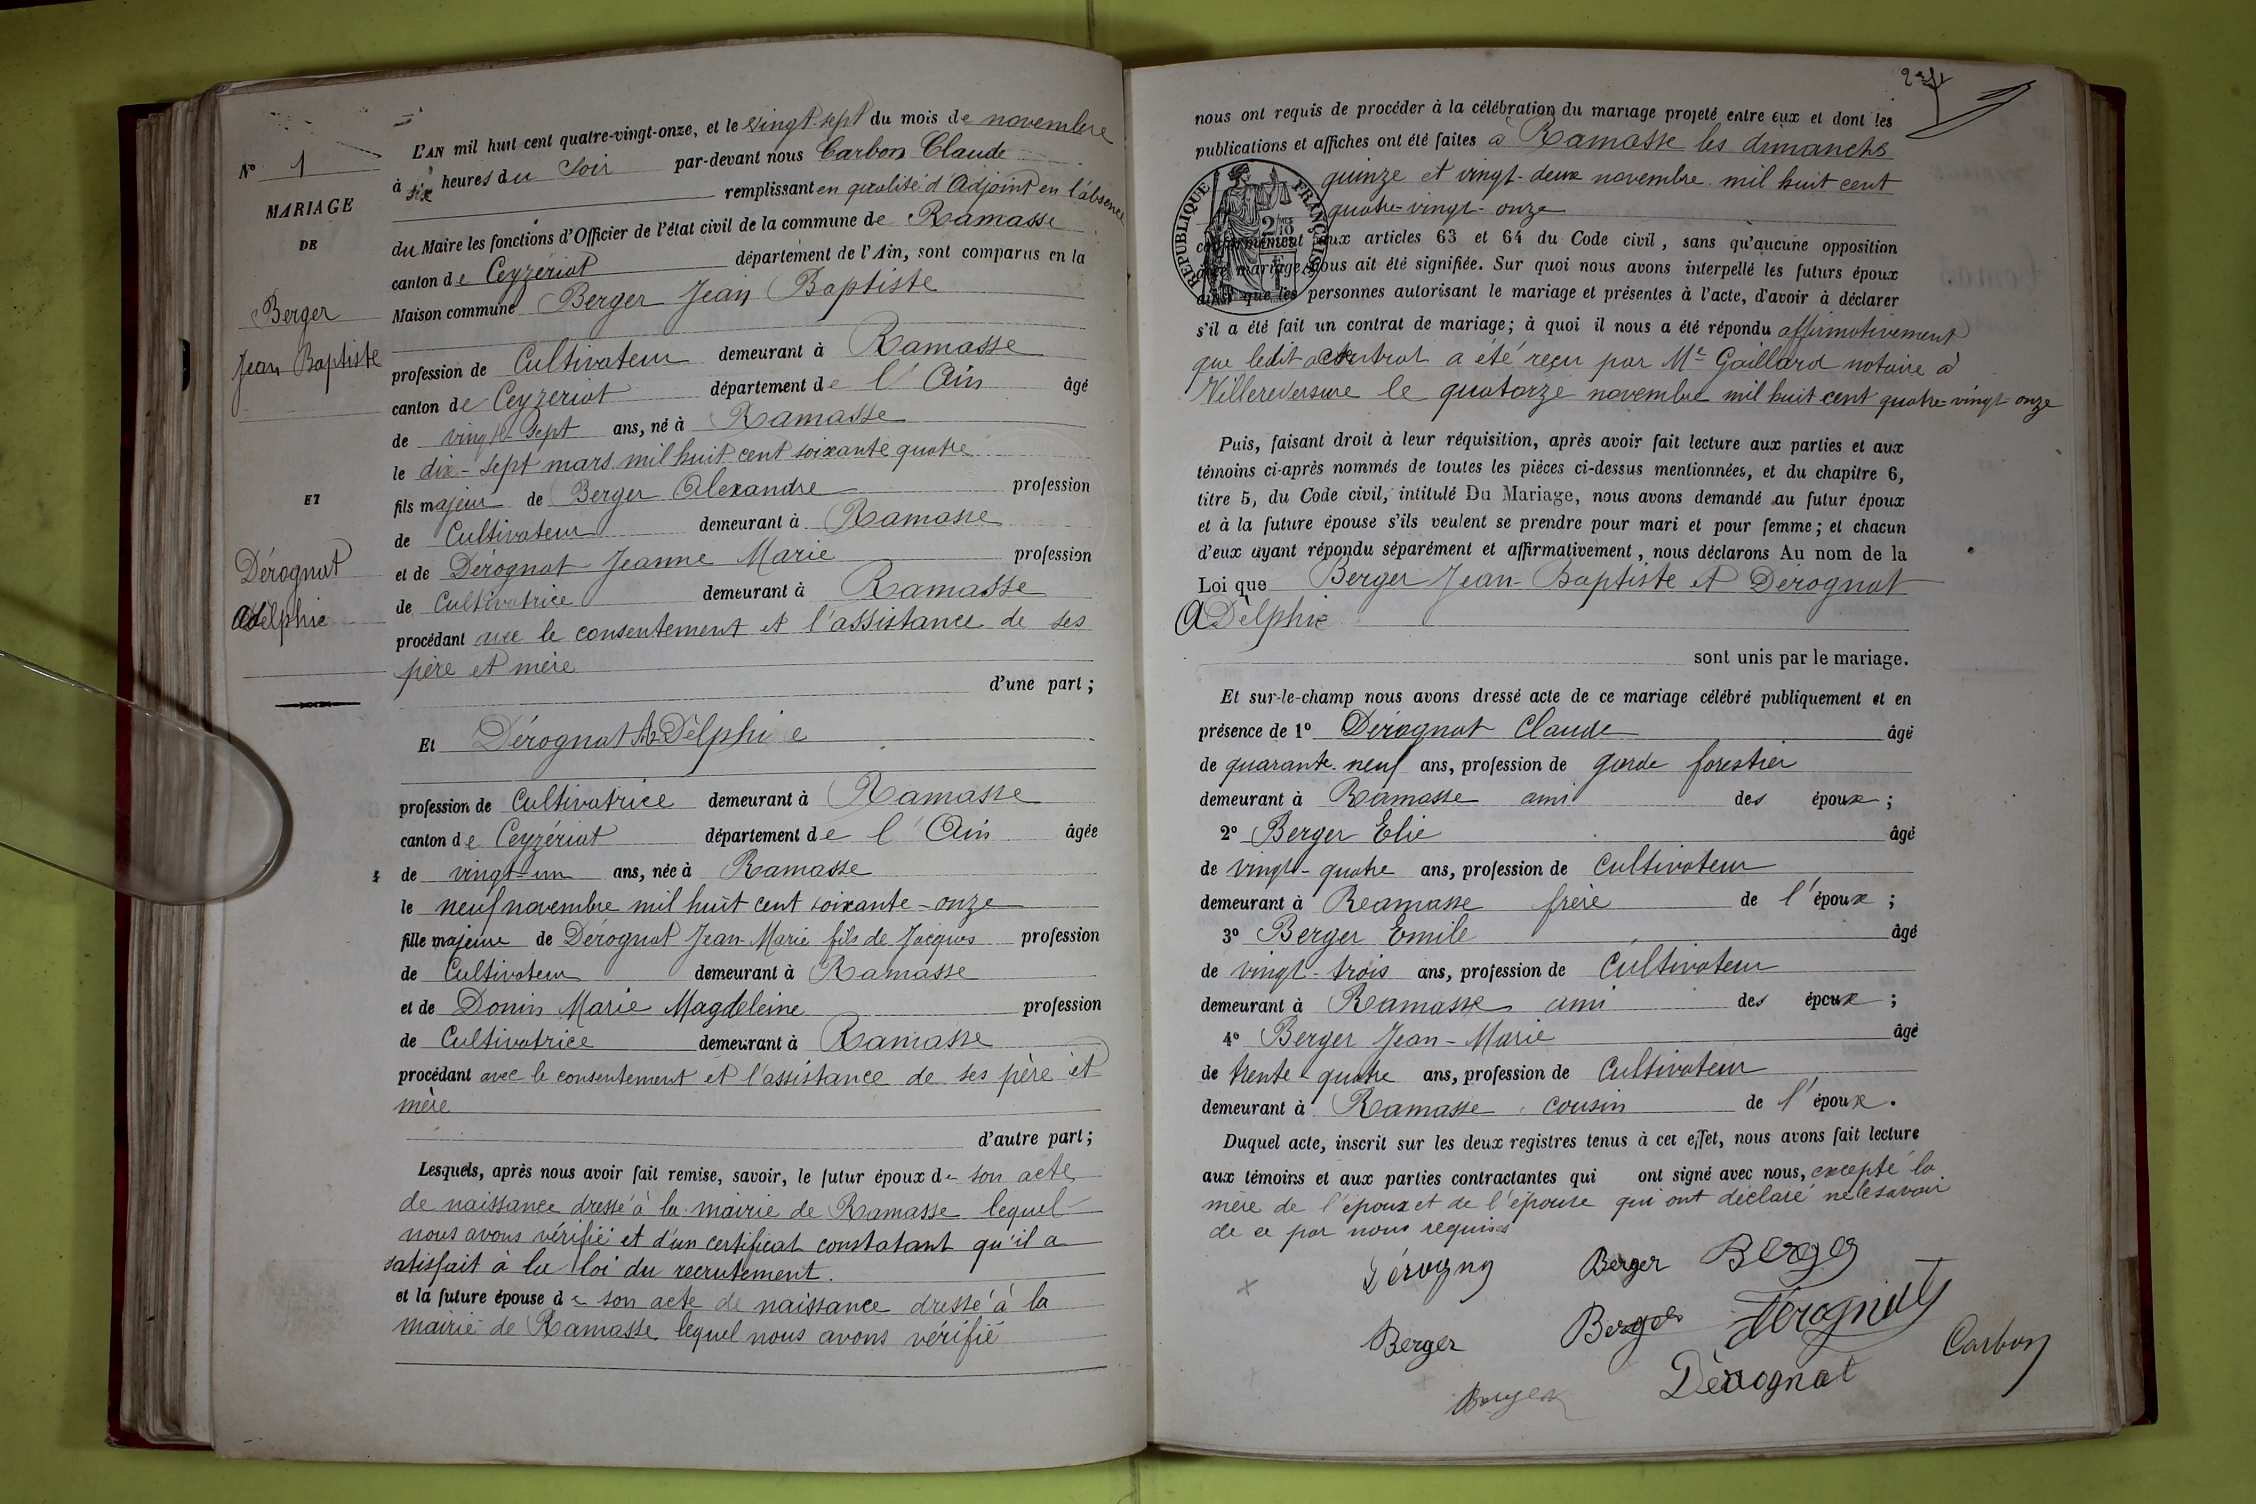 N° 1
MARIAGE
DE
Berger
Jean Baptiste
ET
Dérognat
Adélphie
L'AN mil huit cent quatre-vingt-onze, et le vingt-sept du mois de novembre
à six heures du Soir par-devant nous Carbon Claude
remplissant en qualité d'Adjoint en l'absence
du Maire les fonctions d'Officier de l'état civil de la commune de Ramasse
canton de Ceyzériat département de l'Ain, sont comparus en la
Maison commune Berger Jean Baptiste
profession de Cultivateur demeurant à Ramasse
canton de Ceyzériat département de l'Ain âgé
de vingt-sept ans, né à Ramasse
le dix-sept mars mil huit cent soixante quatre
fils majeur de Berger Alexandre profession
de Cultivateur demeurant à Ramasse
et de Dérognat Jeanne Marie profession
de Cultivatrice demeurant à Ramasse
procédant avec le consentement et l'assistance de ses
père et mère
d'une part;
Et Dérognat Adèlphie
profession de Cultivatrice demeurant à Ramasse
canton de Ceyzériat département de l'Ain âgée
de vingt-un ans, née à Ramasse
le neuf novembre mil huit cent soixante-onze
fille majeure de Dérognat Jean-Marie fils de Jacques profession
de Cultivateur demeurant à Ramasse
et de Donin Marie Magdeleine profession
de Cultivatrice demeurant à Ramasse
procédant avec le consentement et l'assistance de ses père et
mère
d'autre part;
Lesquels, après nous avoir fait remise, savoir, le futur époux de son acte
de naissance dressé à la mairie de Ramasse lequel
nous avons vérifié et d'un certificat constatant qu'il a
satisfait à la loi du recrutement.
et la future épouse de son acte de naissance dressé à la
mairie de Ramasse lequel nous avons vérifié
nous ont requis de procéder à la célébration du mariage projeté entre eux et dont les
publications et affiches ont été faites à Ramasse les dimanches
quinze et vingt-deux novembre mil huit cent
quatre-vingt-onze
RÉPUBLIQUE FRANÇAISE
conformément aux articles 63 et 64 du Code civil, sans qu'aucune opposition
mariage nous ait été signifiée. Sur quoi nous avons interpellé les futurs époux
ainsi que les personnes autorisant le mariage et présentes à l'acte, d'avoir à déclarer
s'il a été fait un contrat de mariage; à quoi il nous a été répondu affirmativement
que ledit contrat a été reçu par Me Gaillard notaire à
Villereversure le quatorze novembre mil huit cent quatre-vingt-onze
Puis, faisant droit à leur réquisition, après avoir fait lecture aux parties et aux
témoins ci-après nommés de toutes les pièces ci-dessus mentionnées, et du chapitre 6,
titre 5, du Code civil, intitulé Du Mariage, nous avons demandé au futur époux
et à la future épouse s'ils veulent se prendre pour mari et pour femme; et chacun
d'eux ayant répondu séparément et affirmativement, nous déclarons Au nom de la
Loi que Berger Jean-Baptiste et Dérognat
Adèlphie
sont unis par le mariage.
Et sur-le-champ nous avons dressé acte de ce mariage célébré publiquement et en
présence de 1° Dérognat Claude âgé
de quarante-neuf ans, profession de garde forestier
demeurant à Ramasse ami des époux;
2° Berger Elie âgé
de vingt-quatre ans, profession de Cultivateur
demeurant à Ramasse frère de l'époux;
3° Berger Emile âgé
de vingt-trois ans, profession de Cultivateur
demeurant à Ramasse ami des époux;
4° Berger Jean-Marie âgé
de trente-quatre ans, profession de Cultivateur
demeurant à Ramasse cousin de l'époux.
Duquel acte, inscrit sur les deux registres tenus à cet effet, nous avons fait lecture
aux témoins et aux parties contractantes qui ont signé avec nous, excepté la
mère de l'époux et de l'épouse qui ont déclaré ne le savoir
de ce par nous requises
Berger Berger
Berger Berger Dérognat
Carbon
Dérognat
Berger